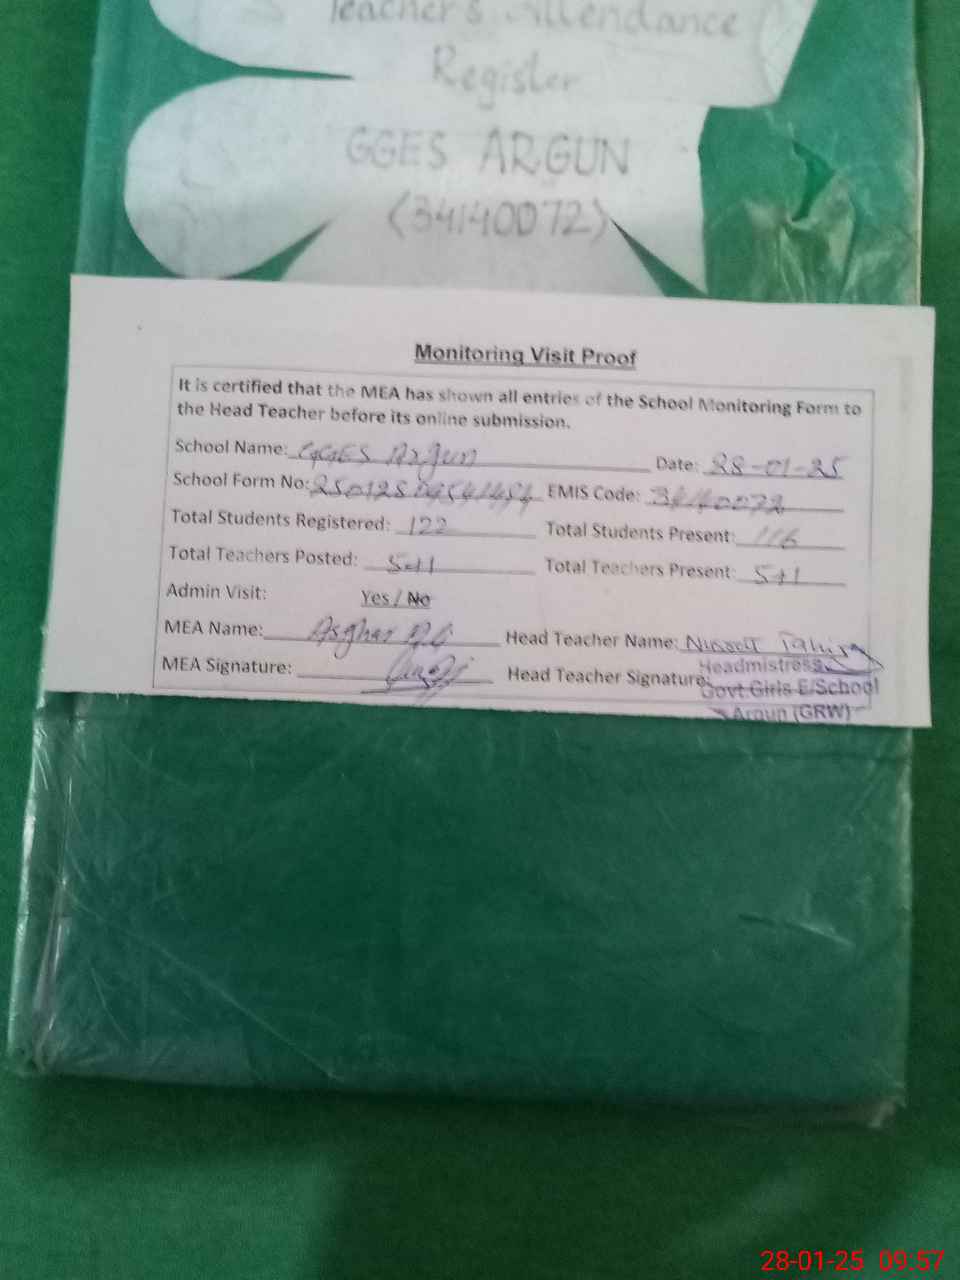 Teacher's Attendance
Register
GGES ARGUN
(34140072)
Monitoring Visit Proof
It is certified that the MEA has shown all entries of the School Monitoring Form to
the Head Teacher before its online submission.
School Name: GGES Argun Date: 28-01-25
School Form No: EMIS Code: 34140072
Total Students Registered: 122 Total Students Present: 116
Total Teachers Posted: 5+1 Total Teachers Present: 5+1
Admin Visit: Yes / No
MEA Name: Asghar Ali Head Teacher Name:
MEA Signature: Head Teacher Signature:
Headmistress
Govt.Girls E/School
Argun (GRW)
28-01-25 09:57